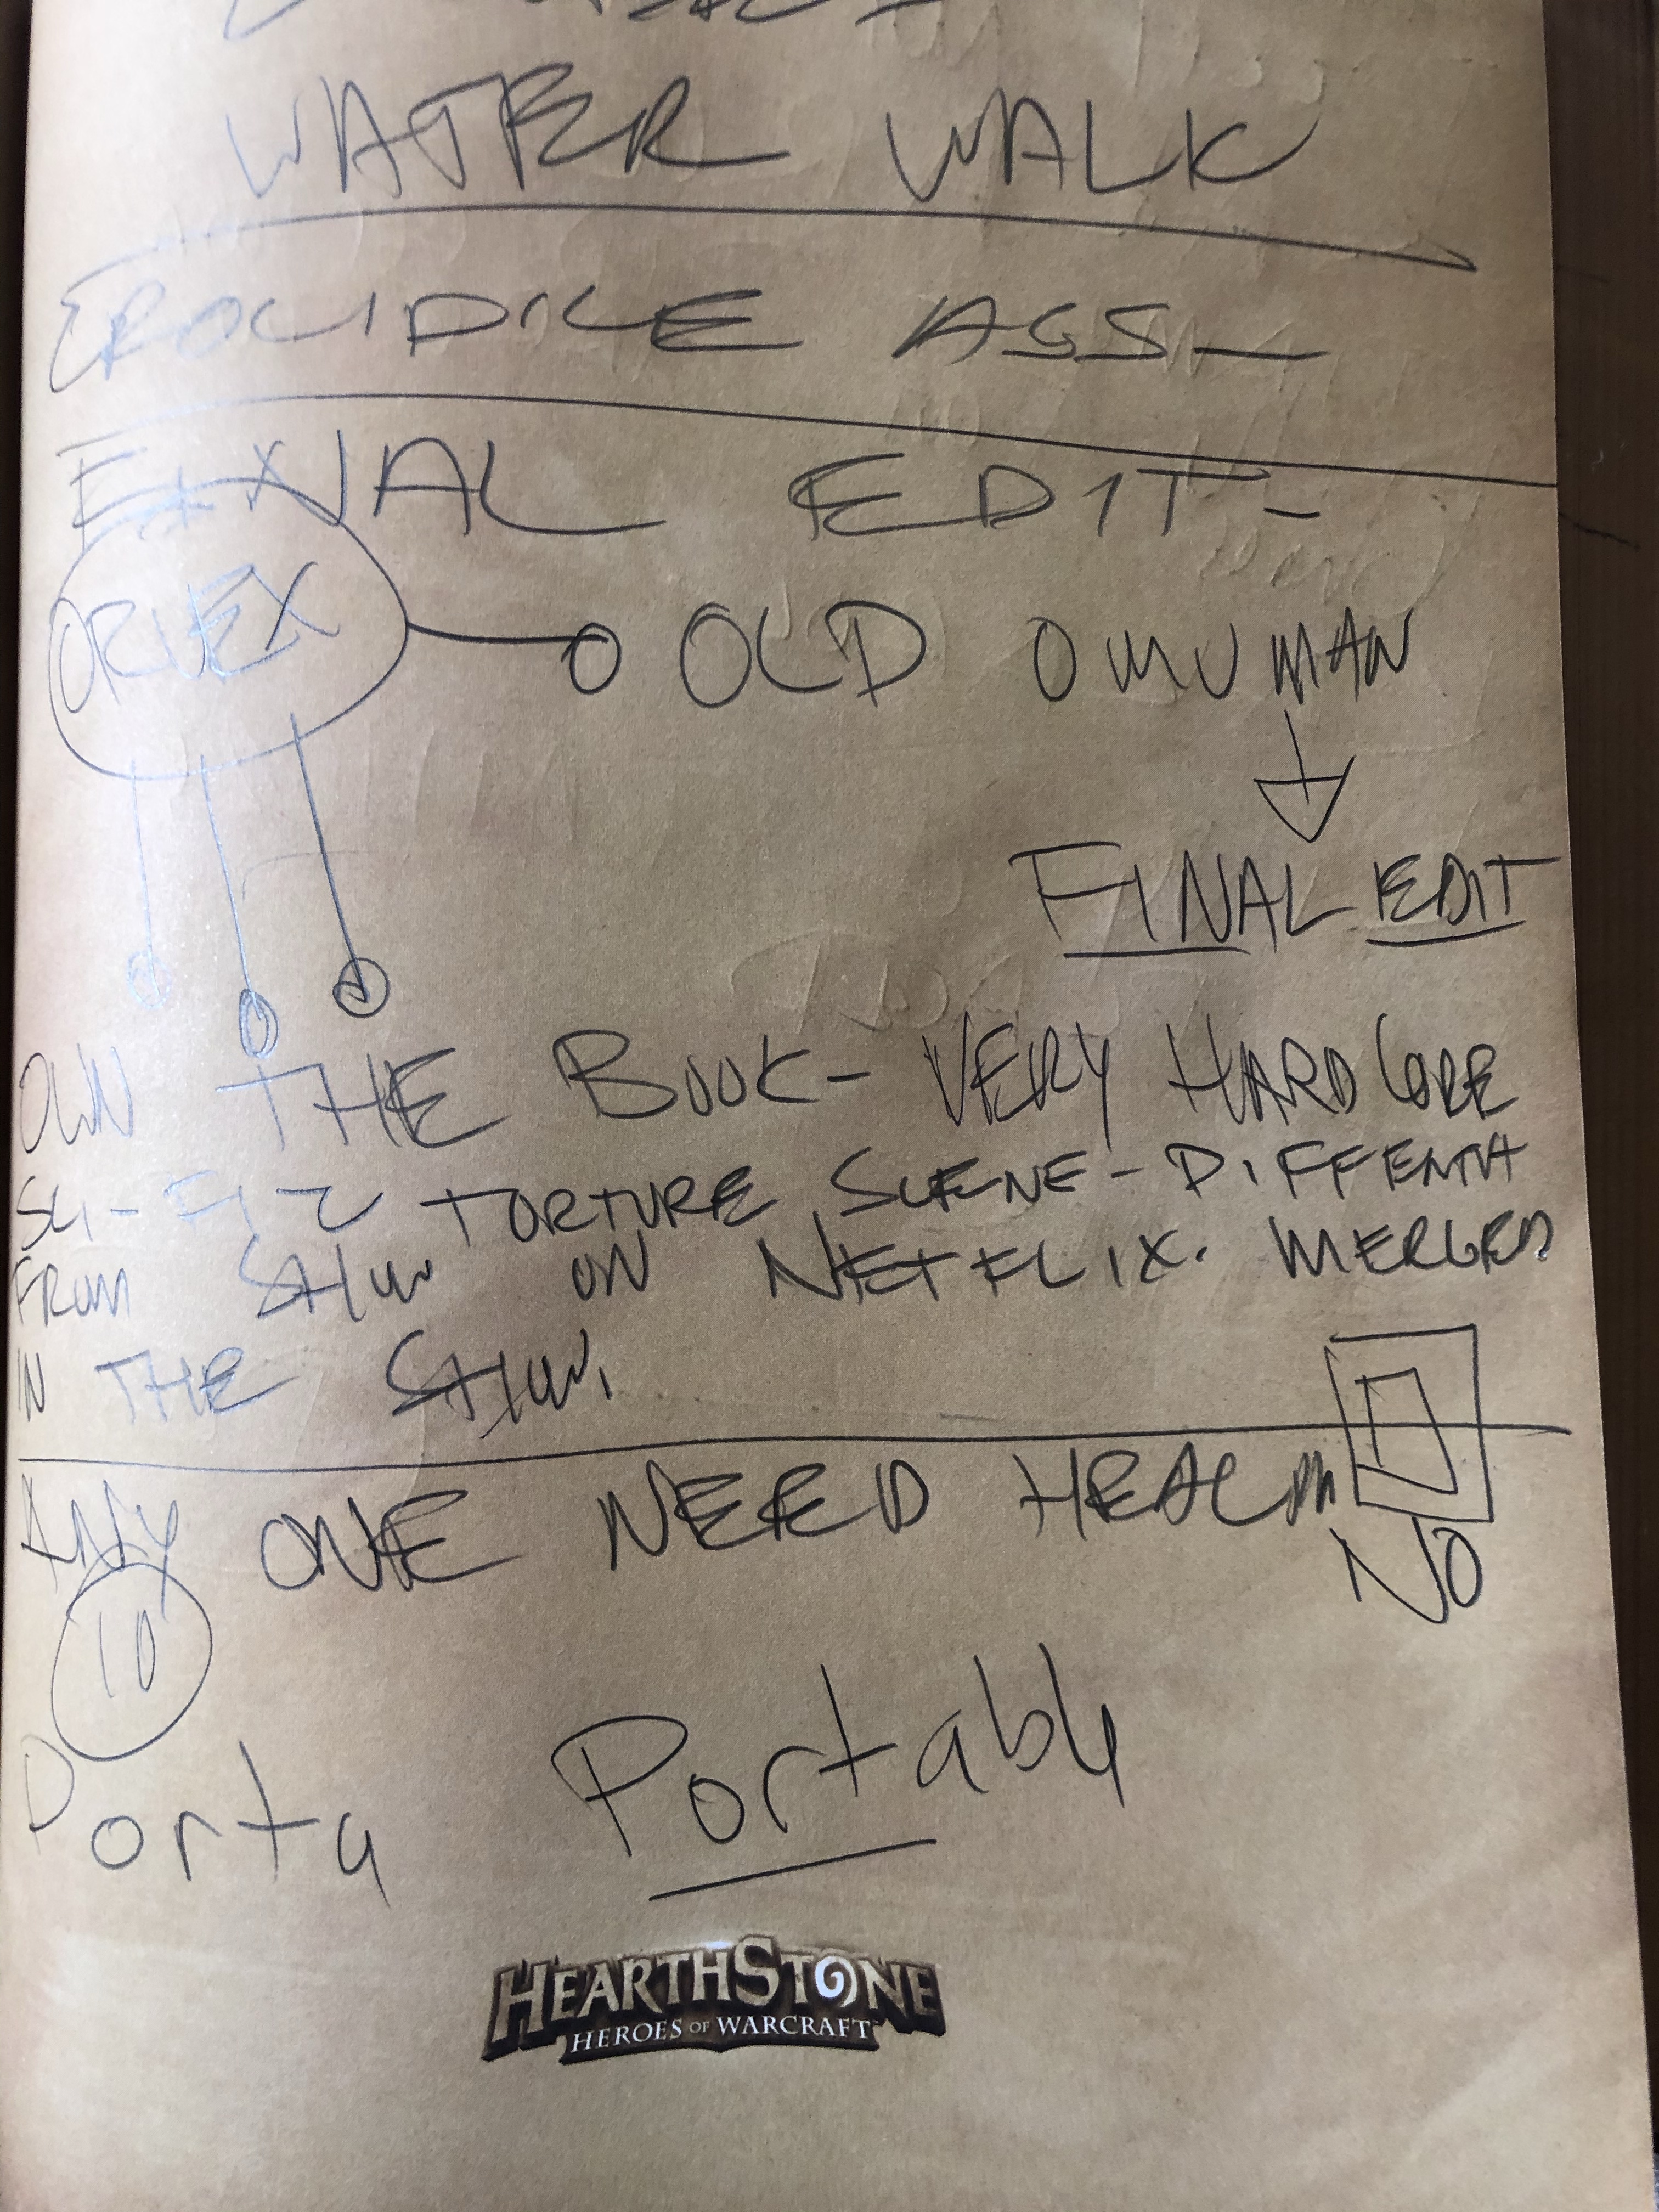 WATER WALK
ASS-
FINAL EDIT-
ORVEX
OLD
FINAL EDIT
OWN THE BOOK- VERY HARDCORE
SCI-FI TORTURE SCENE- DIFFENTA
FROM SHOW ON NETFLIX. MERGED
IN THE SHOW.
ANY ONE NEED
NO
10
Porta Portable
HEARTHSTONE
HEROES OF WARCRAFT